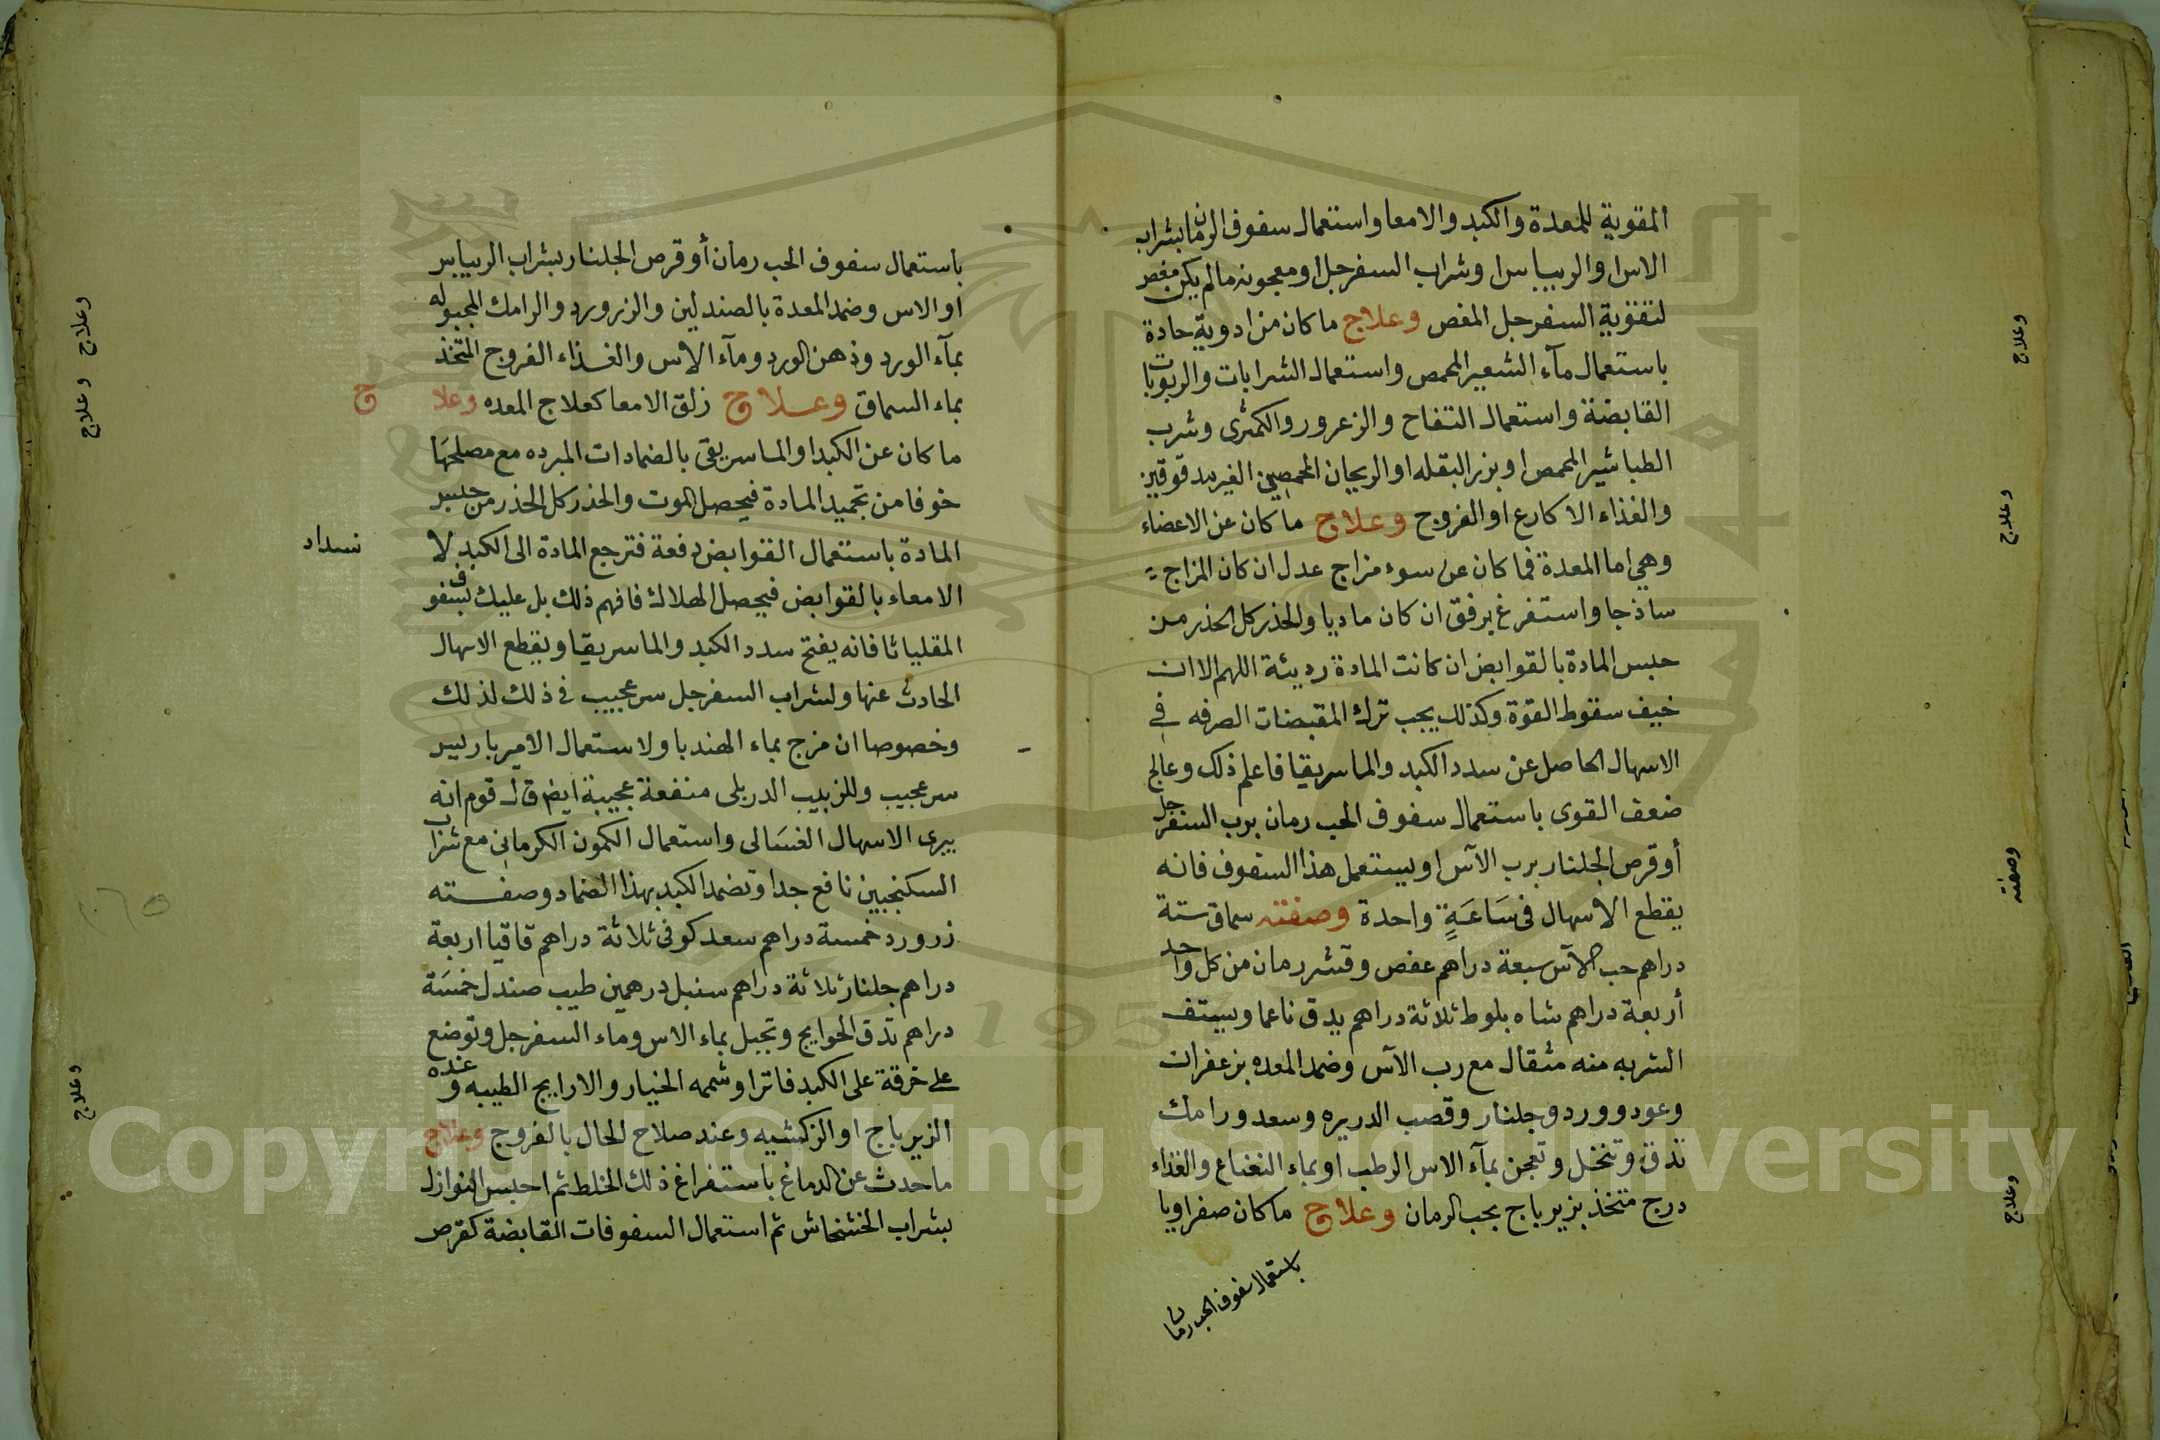 المقوية للمعدة والكبد والامعا واستعمال سفوف الرمان بشراب
الاس او الريباس او شراب السفرجل او معجونه مالم يكن مغص
لتقوية السفرجل المغص وعلاج ما كان من ادوية حادة
باستعمال مآء الشعير المحمص واستعمال الشرابات والربوبات
القابضة واستعمال التفاح والزعرور والكمثرى وشرب
الطباشير المحمص او بزر البقله او الريحان المحمصين الغير مدقوقين
والغذاء الاكارع او الفروج وعلاج ما كان عن الاعضاء
وهي اما المعدة فما كان عن سوء مزاج عدل ان كان المزاج
ساذجا واستفرغ برفق ان كان ماديا والحذر كل الحذر من
حبس المادة بالقوابض ان كانت المادة رديئة اللهم الا ان
خيف سقوط القوة وكذلك يجب ترك المقبضات الصرفه في
الاسهال الحاصل عن سدد الكبد والماسريقا فاعلم ذلك وعالج
ضعف القوى باستعمال سفوف الحب رمان برب السفرجل
أو قرص الجلنار برب الآس او يستعمل هذا السفوف فانه
يقطع الاسهال في سَاعَةٍ واحدة وصفته سماق ستة
دراهم حب الآس سبعة دراهم عفص وقشر رمان من كل واحد
أربعة دراهم شاه بلوط ثلاثة دراهم يدق ناعما ويستف
الشربه منه مثقال مع رب الآس وضمد المعده بزعفران
وعود وورد وجلنار وقصب الدريره وسعد ورامك
تدق وتنخل وتعجن بمآء الاس الرطب او بماء النعناع والغذاء
درج متخذ بزيرباج بحب الرمان وعلاج ما كان صفراويا
باستعمال سفوف الحب رمان
وعلاج
وعلاج
وصفته
وعلاج
باستعمال سفوف الحب رمان أو قرص الجلنار بشراب الريباس
او الاس وضمد المعدة بالصندلين والزرورد والرامك المجبوله
بمآء الورد وذهن الورد ومآء الاس والغذاء الفروج المتخذ
بماء السماق وعلاج زلق الامعا كعلاج المعده وعلاج
ما كان عن الكبد او الماسريقى بالضمادات المبرده مع مصلحهَا
خوفا من تجميد المادة فيحصل الموت والحذر كل الحذر من حبس
المادة باستعمال القوابض دفعة فترجع المادة الى الكبد لا نسداد
الامعاء بالقوابض فيحصل الهلاك فافهم ذلك بل عليك بسفوف
المقلياثا فانه يفتح سدد الكبد والماسريقا ويقطع الاسهال
الحادث عنها ولشراب السفرجل سر عجيب في ذلك لذلك
وخصوصا ان مزج بماء الهندبا ولاستعمال الامبرباريس
سر عجيب وللزبيب الدربلى منفعة عجيبة ايض قال قوم انه
يبرى الاسهال الغسَالى واستعمال الكمون الكرماني مع شراب
السكنجبين نافع جدا وتضمد الكبد بهذا الضماد وصفته
زرورد خمسة دراهم سعد كوفى ثلاثة دراهم قاقيا اربعة
دراهم جلنار ثلاثة دراهم سنبل درهمين طيب صندل خمسَة
دراهم تدق الحوايج وتجبل بماء الاس وماء السفرجل وتوضع
على خرقة على الكبد فاترا وشممه الخيار والاراييج الطيبه وعنده
الزيرباج او الزركشيه وعند صلاح الحال بالفروج وعلاج
ما حدث عن الدماغ باستفراغ ذلك الخلط ثم احبس النوازل
بشراب الخشخاش ثم استعمال السفوفات القابضة كقرص
وعلاج وعلاج
وعلاج
Copyright © King Saud University
195